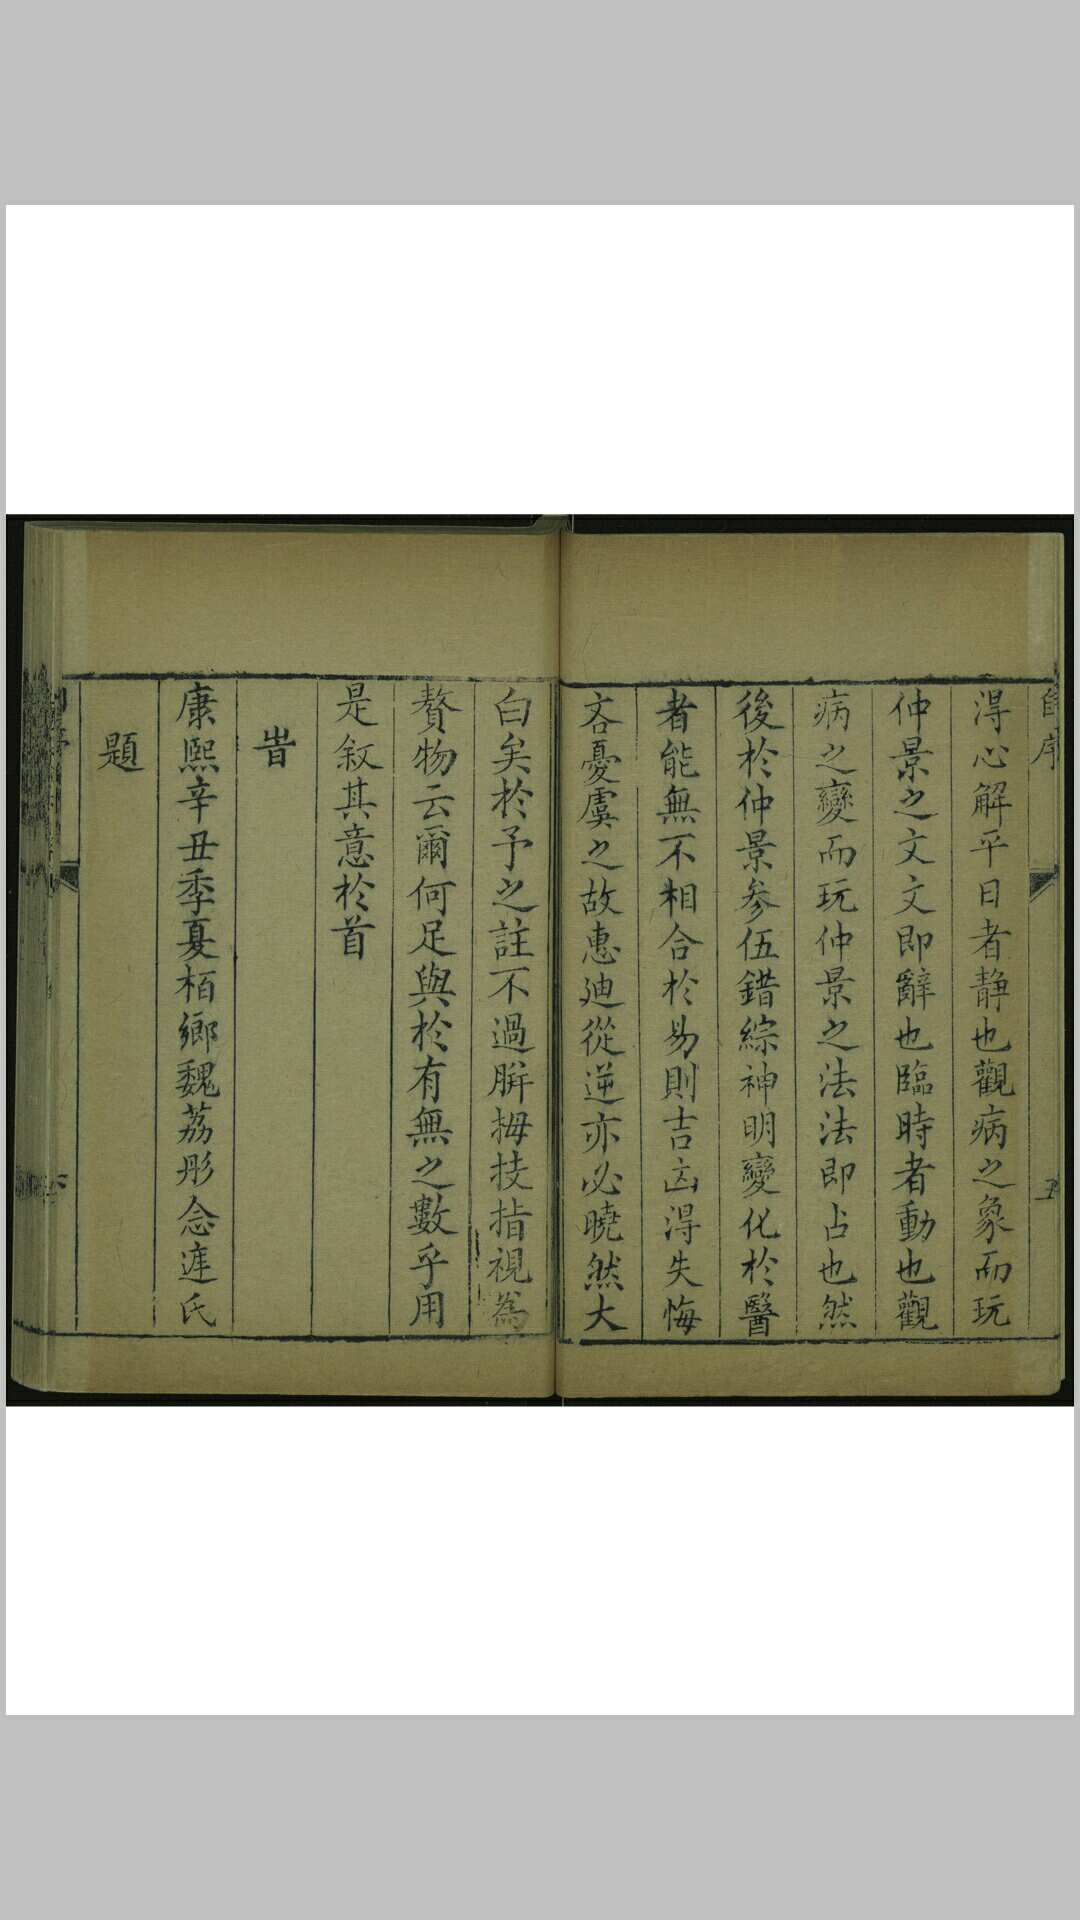 得心解平日者静也觀病之象而玩
仲景之文文即辭也臨時者動也觀
病之變而玩仲景之法法即占也然
後於仲景參伍錯綜神明變化於醫
者能無不相合於易則吉凶得失悔
吝憂虞之故惠迪從逆亦必曉然大
白矣於予之註不過騈拇技指視為
贅物云爾何足與於有無之數乎用
是叙其意於首
旹
康熙辛丑季夏栢鄉魏荔彤念庭氏
題